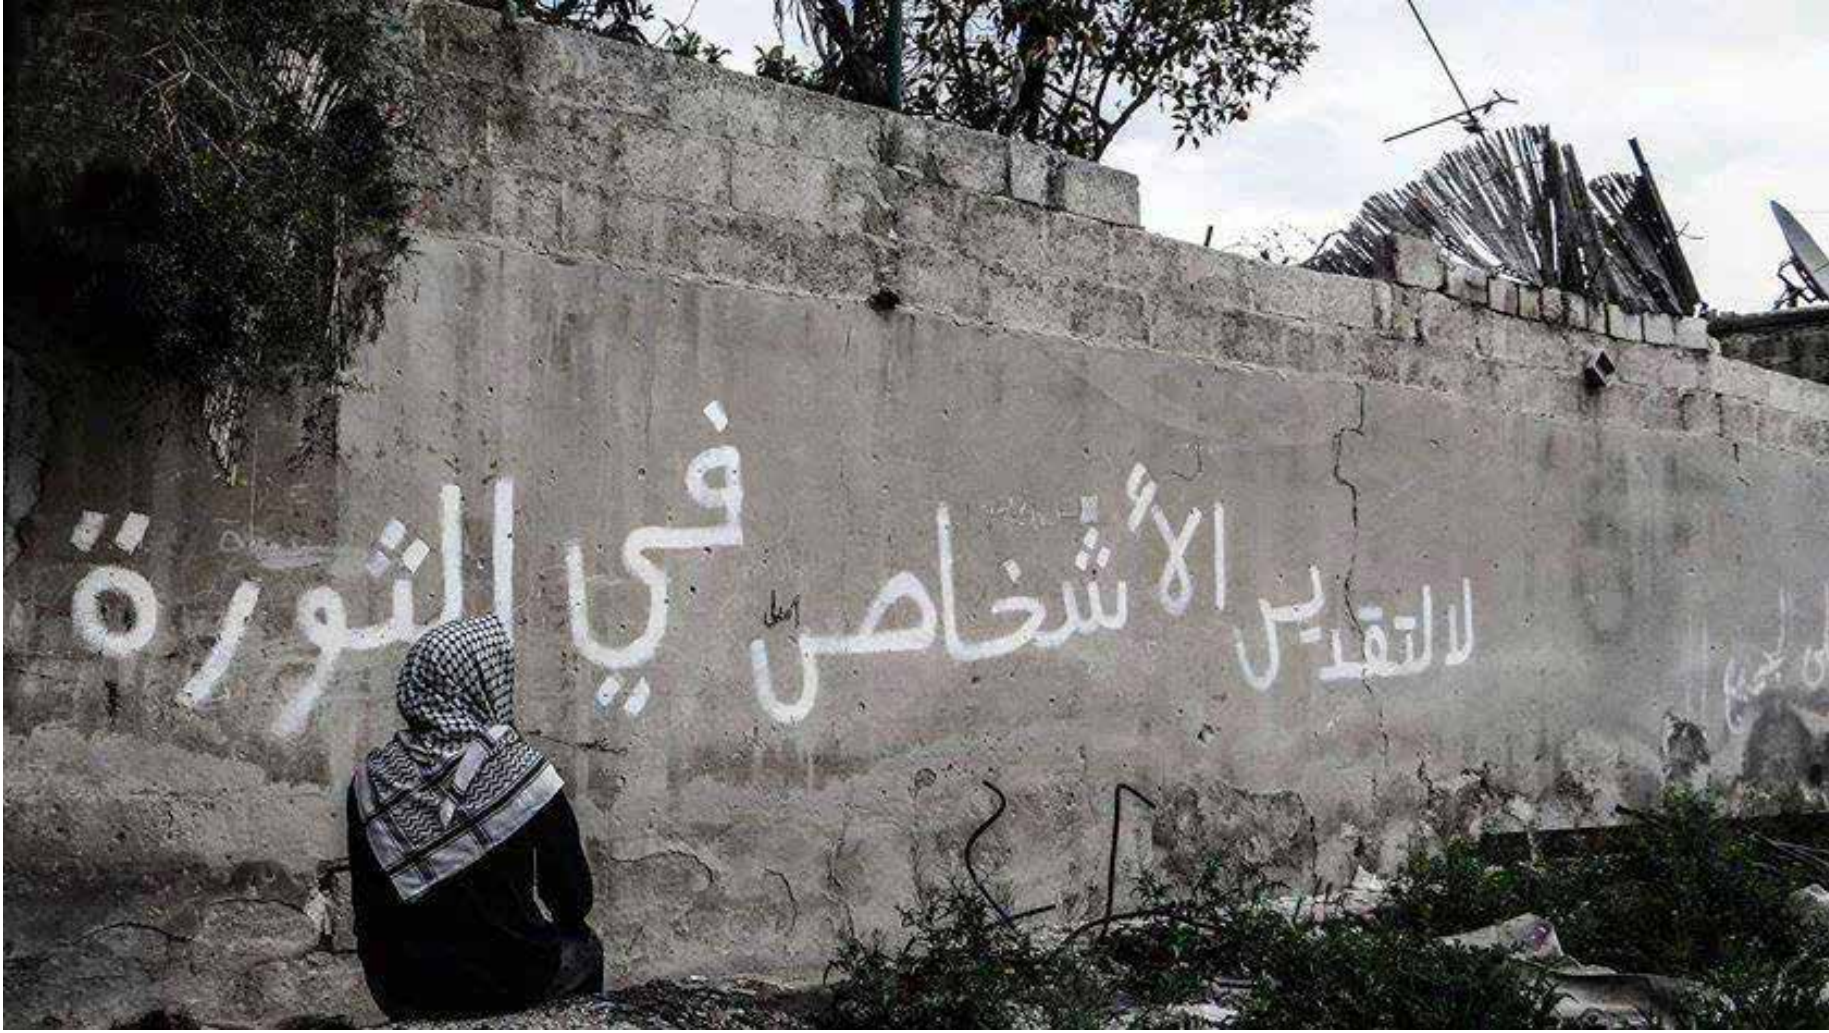 لا لتقديس الأشخاص في الثورة